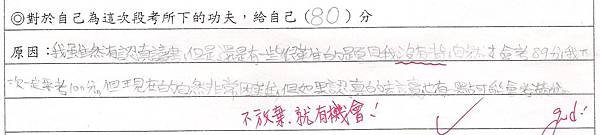 ◎對於自己為這次段考所下的功夫，給自己（80）分
原因：我雖然有認真讀書，但是還是有一些很難的題目我沒有自然才會考89分，我下
次一定要考100分。但現在的自然非常困難，但如果認真的讀書也有一點可能會考滿分。
不放棄，就有機會！
good!